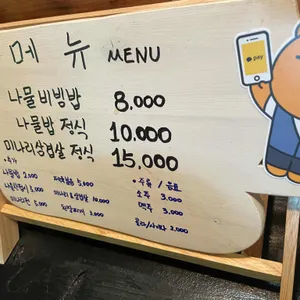 메뉴 MENU
pay
나물 비빔밥 8.000
나물밥 정식 10.000
미나리삼겹살 정식 15,000
• 추가
• 주류 / 음료
나물밥 2,000
5,000
소주 3,000
5,000
미나리&삼겹살 10,000
맥주 3,000
미나리전 5,000
3,000
콜라/사이다 2,000